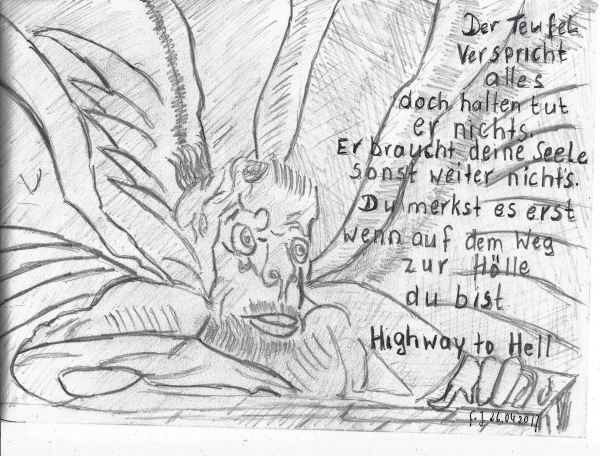 Der Teufel
verspricht
alles
doch halten tut
er nichts.
Er braucht deine Seele
sonst weiter nichts.
Du merkst es erst
wenn auf dem Weg
zur Hölle
du bist
Highway to Hell
26.04.2017